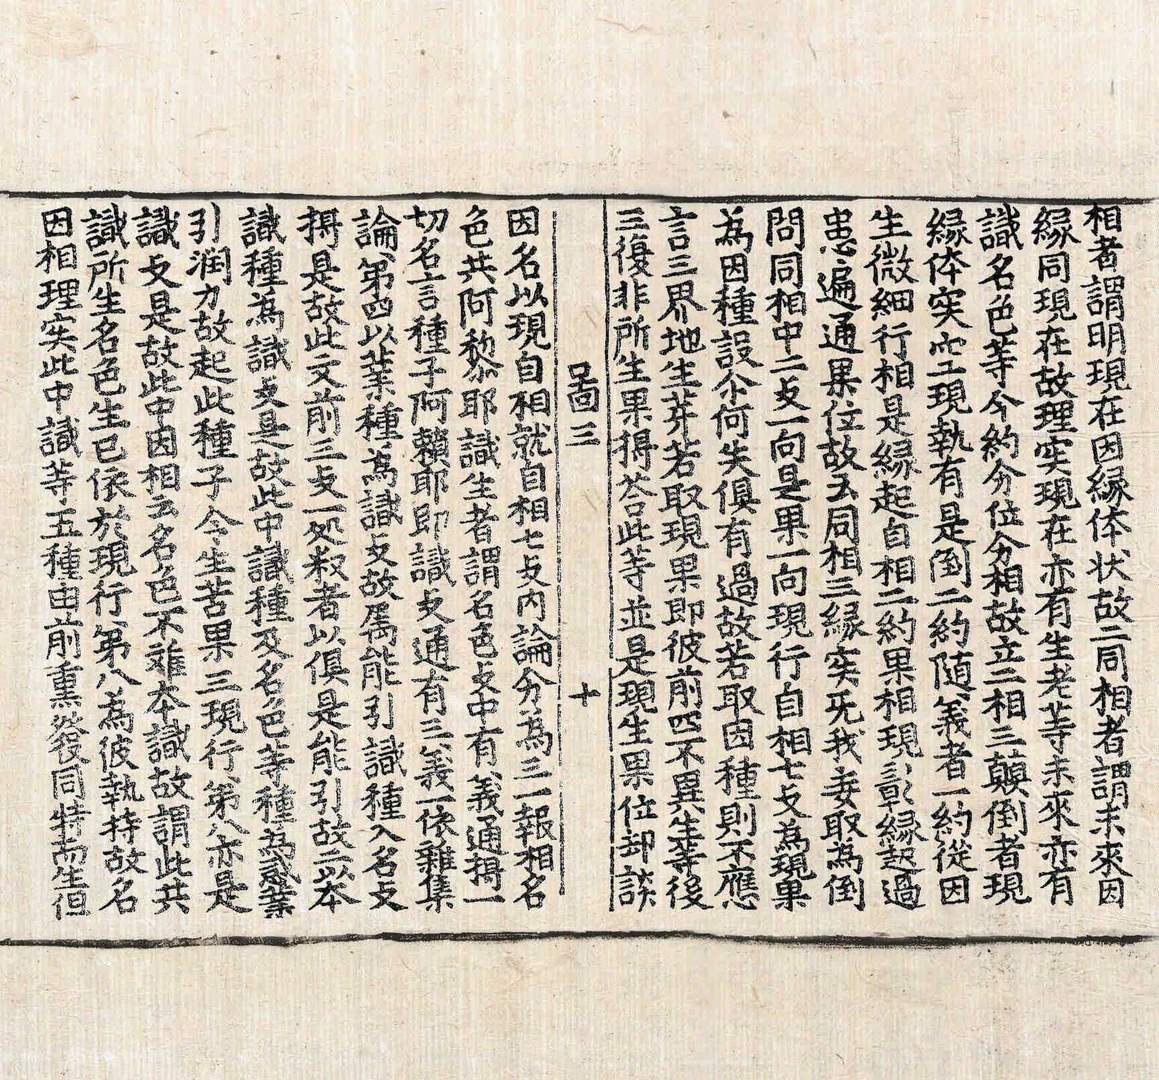 相者謂明現在因縁体状故二同相者謂未來因
縁同現在故理実現在亦有生老等未來亦有
識名色等今約分位分相故立二相三顛倒者現
縁体実空現執有是倒二約随義者一約從因
生微細行相是縁起自相二約果相現彰縁起過
患遍通果位故云同相三縁実旡我妄取為倒
問同相中二攴一向是果一向現行自相七攴為現果
為因種設尒何失俱有過故若取因種則不應
言三界地生芽若取現果即彼前四不異生等後
三復非所生果得荅此等並是現生果位却談
啚三　十
因名以現自相就自相七攴內論分為三一報相名
色共阿黎耶識生者謂名色攴中有義通揖一
切名言種子阿賴耶即識攴通有三義一依雜集
論第四以業種為識攴故属能引識種入名攴
揖是故此文前三攴一処叙者以俱是能引故二以本
識種為識攴是故此中識種及名色等種為惑業
引润力故起此種子令生苦果三現行第八亦是
識攴是故此中因相云名色不離本識故謂此共
識所生名色生已依於現行第八為彼執持故名
因相理実此中識等五種由前熏發同時而生但